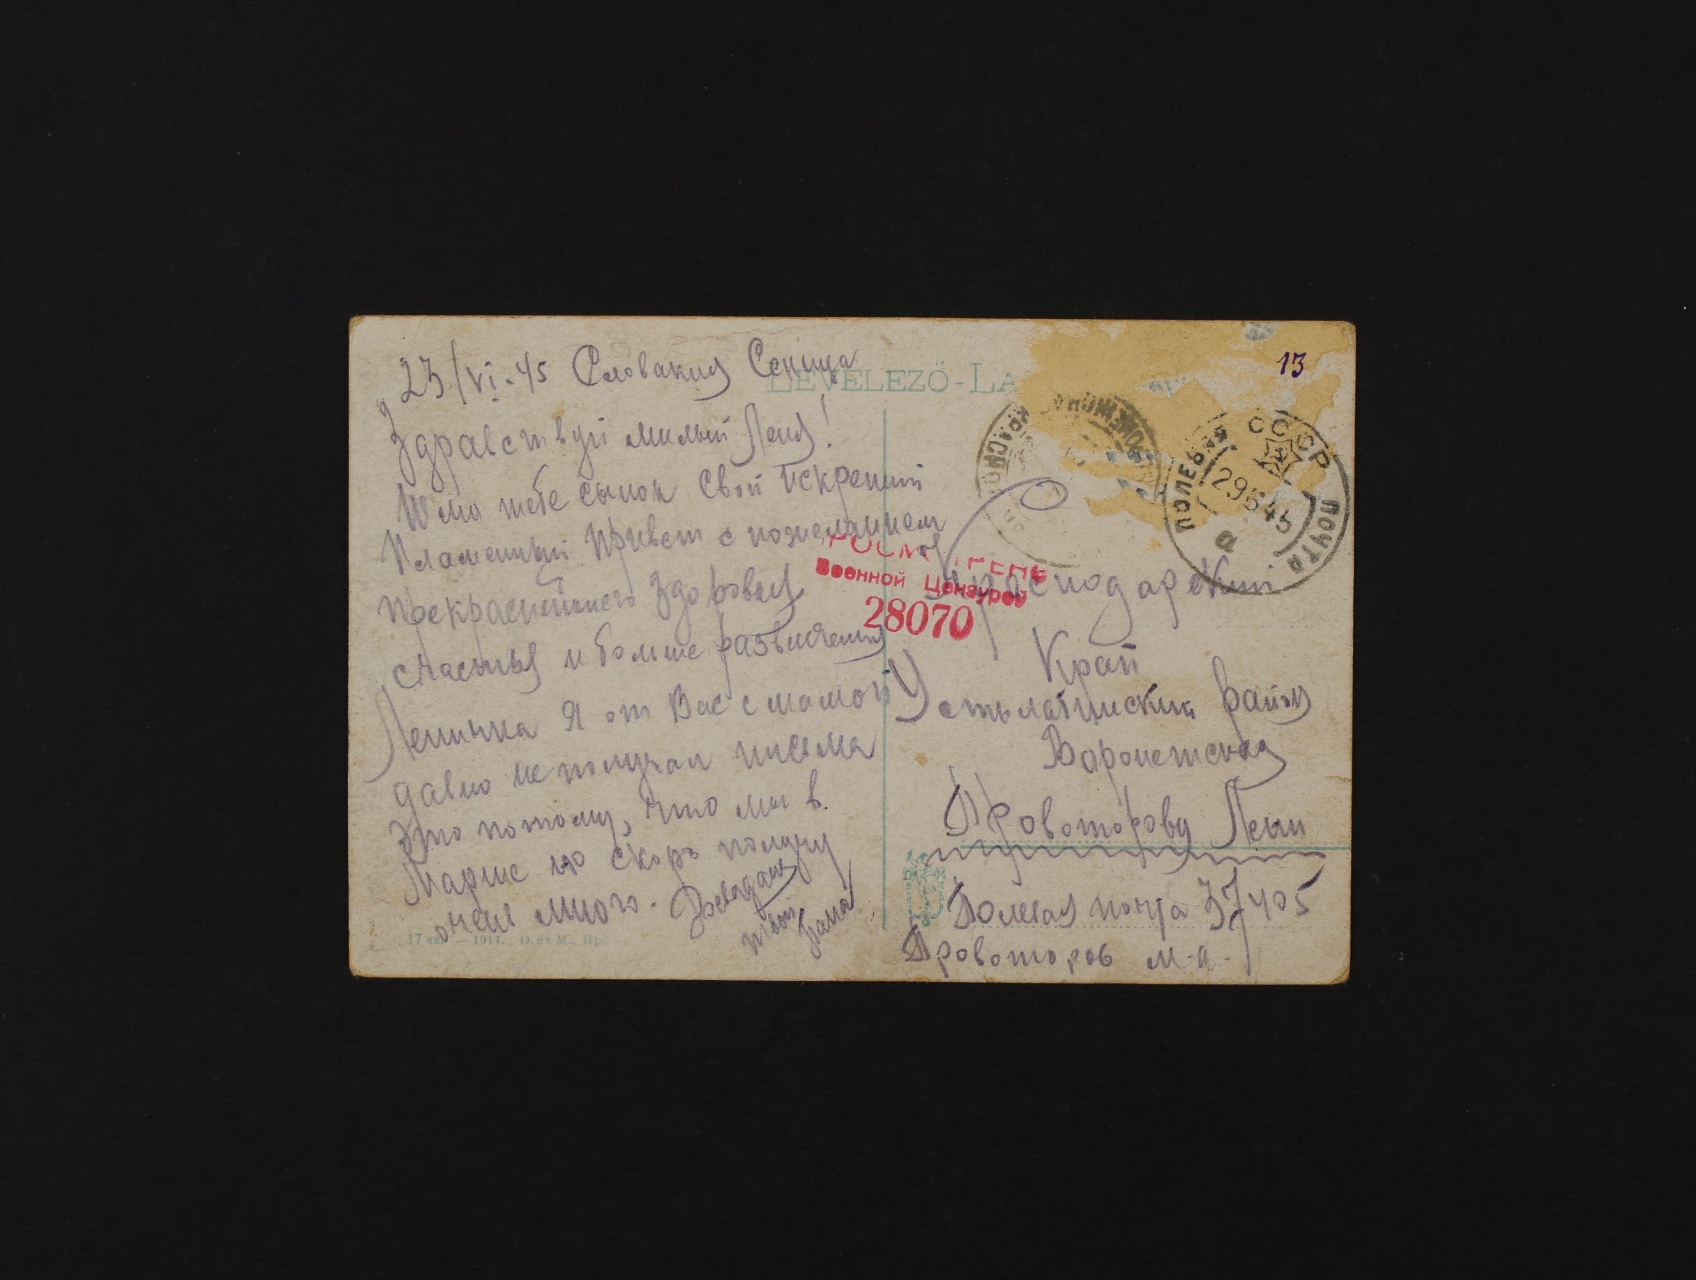 23/VI-45 Словакия Сеница
Здравствуй милый Леня!
Шлю тебе сынок свой искрений
пламенный привет с пожеланием
прекраснейшего здоровья
счастья и больше развлечения
Леничка я от Вас с мамой
давно не получал письма
это потому, что мы в
марше но скоро получу
очень много. Досвидан
твой папа
LEVELEZŐ-LA
13
СССР
ПОЛЕВАЯ ПОЧТА
29 6 45
Военной Цензурой
28070
Краснодарский
Край
Устьлабинский район
Воронежская
Провоторову Лени
Полевая почта 37405
Провоторов м-а-
1917. D. és M., Bp.